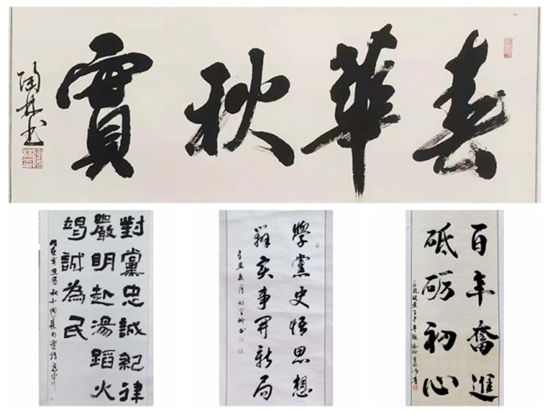 春華秋實
對黨忠誠紀律
嚴明赴湯蹈火
竭誠為民
學黨史悟思想
辦实事開新局
百年奮進
砥砺初心